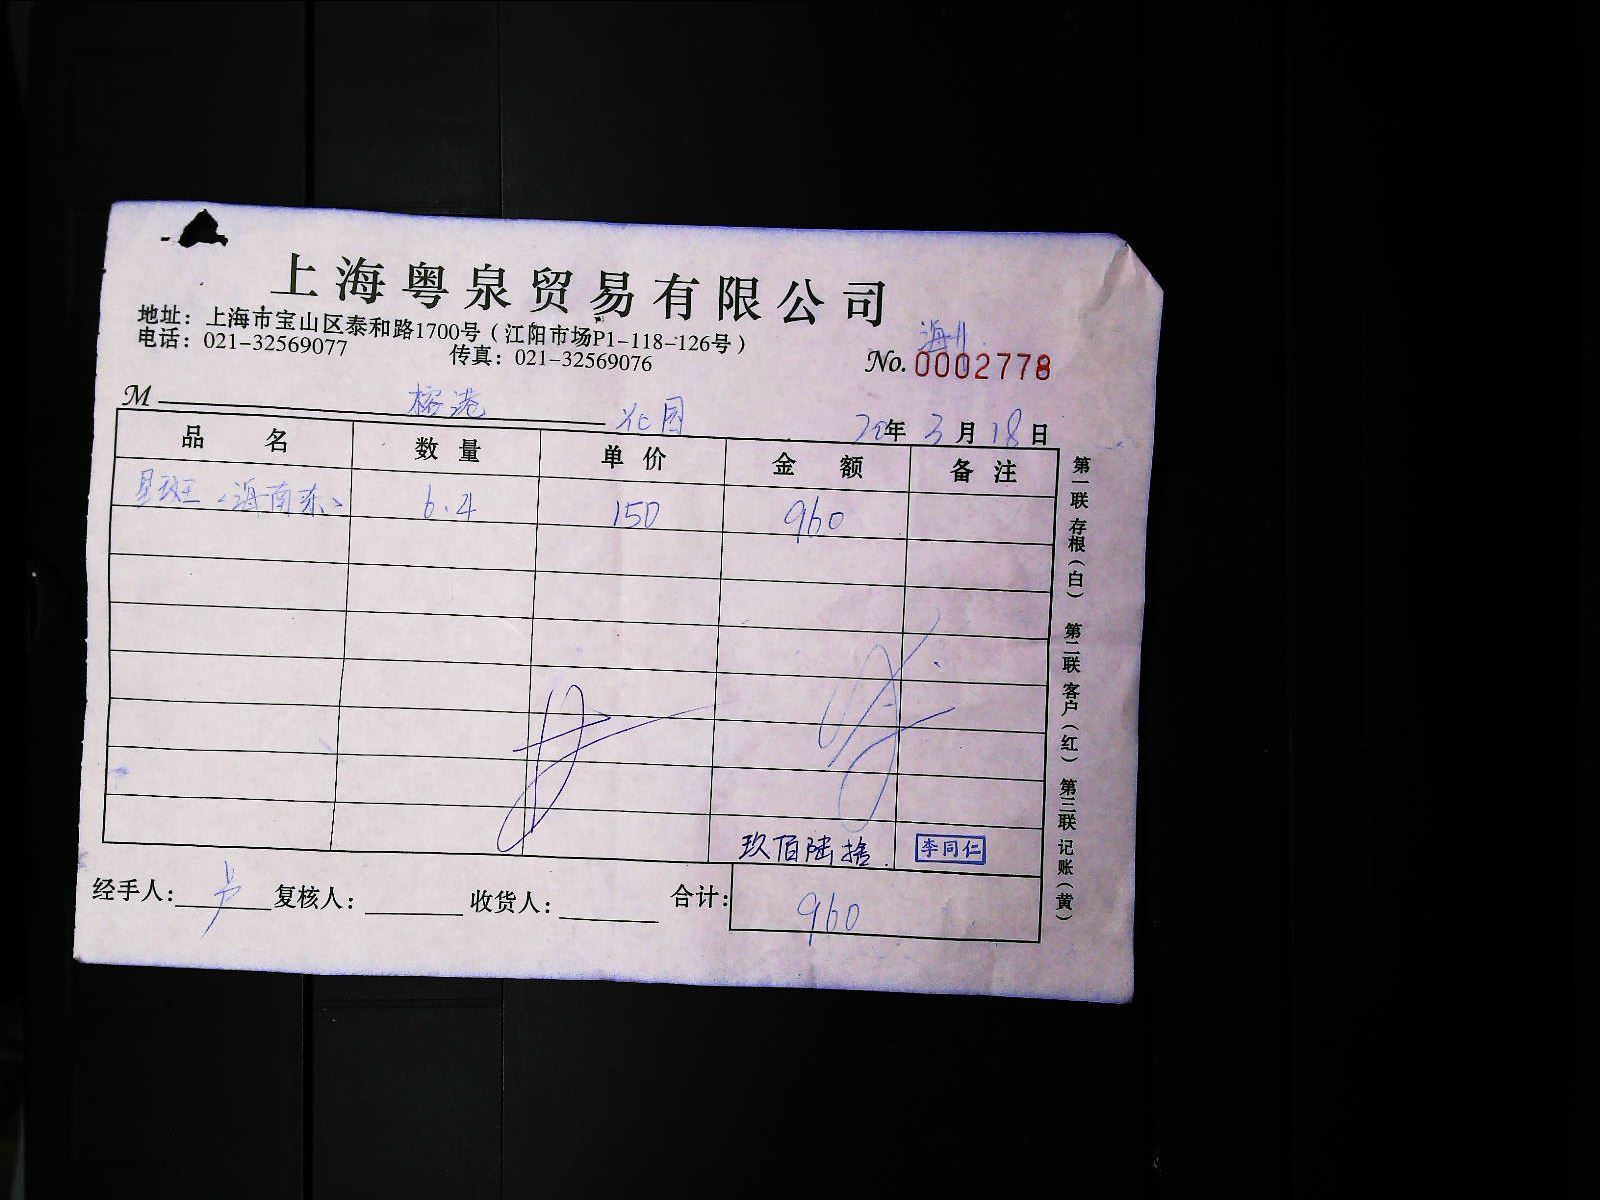 上海粤泉贸易有限公司
地址：上海市宝山区泰和路1700号（江阳市场P1-118-126号）
电话：021-32569077 传真：021-32569076
No. 0002778
M 榕港 花园 22年 3月 18日
品名 数量 单价 金额 备注
星斑（海南东） 6.4 150 960
玖佰陆拾 李同仁
经手人： 卢 复核人： 收货人： 合计： 960
第一联 存根（白） 第二联 客户（红） 第三联 记账（黄）